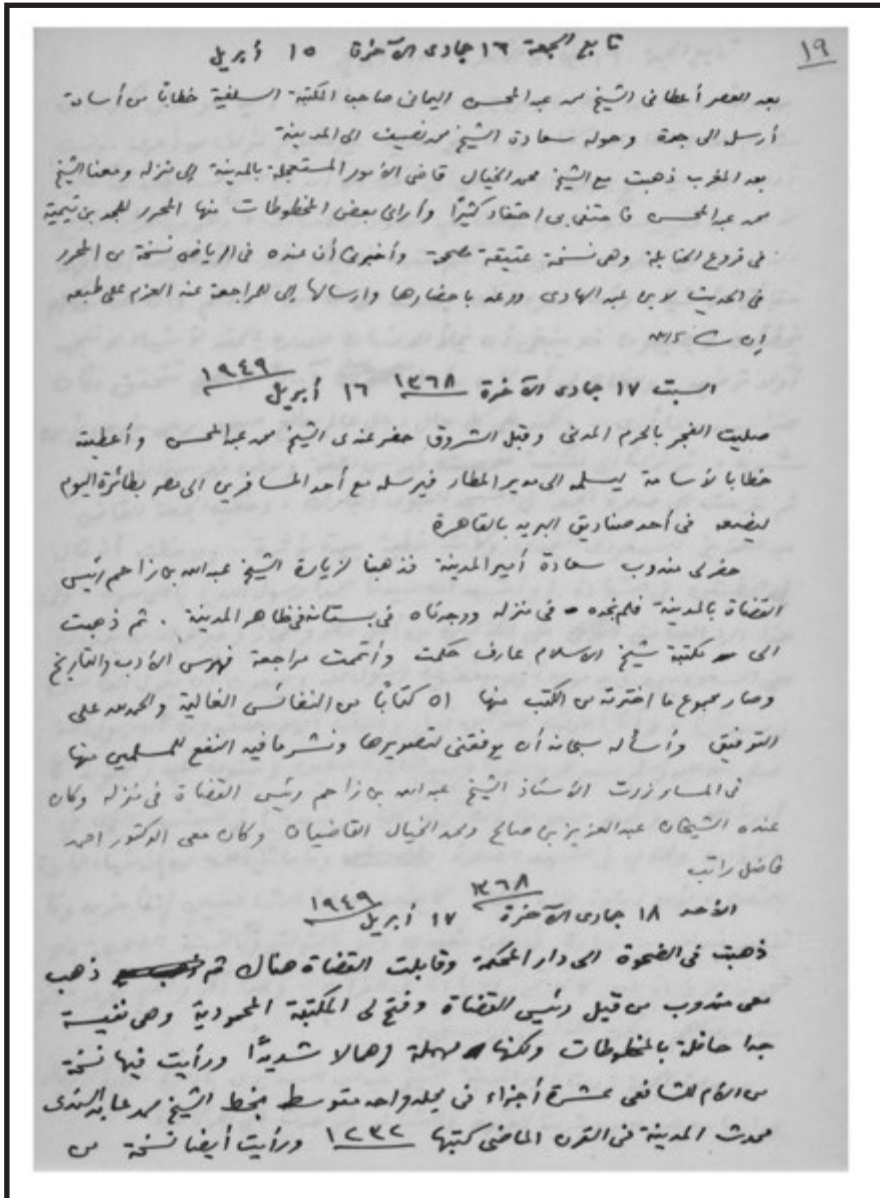 ١٩
تابع الجمعة ١٦ جمادى الآخرة ١٥ أبريل
بعد العصر أعطانى الشيخ محمد عبد المحسن اليمانى صاحب المكتبة السلفية خطابًا من أسامة
أرسل الى جدة وحوله سعادة الشيخ محمد نصيف الى المدينة
بعد المغرب ذهبت مع الشيخ محمد الخيال قاضى الأمور المستعجلة بالمدينة إلى منزله ومعنا الشيخ
محمد عبد المحسن فاحتفى بى احتفاء كثيرًا وأرانى بعض المخطوطات منها المحرر للمجد بن تيمية
فى فروع الحنابلة وهى نسخة عتيقة مصححة وأخبرنى أن عنده فى الرياض نسخة من المحرر
فى الحديث لابن عبد الهادى ووعد باحضارها وارسالها إلى للمراجعة عند العزم على طبعه
إن شاء الله
السبت ١٧ جمادى الآخرة ١٣٦٨ ١٦ أبريل ١٩٤٩
صليت الفجر بالحرم المدنى وقبل الشروق حضر عندى الشيخ محمد عبد المحسن وأعطيته
خطابا لأسامة ليسلمه الى مدير المطار فيرسله مع أحد المسافرين الى مصر بطائرة اليوم
ليضعه فى أحد صناديق البريد بالقاهرة
حضر لى مندوب سعادة أمير المدينة فذهبنا لزيارة الشيخ عبد الله بن زاحم رئيس
القضاة بالمدينة فلم نجده فى منزله ووجدناه فى بستانه فى ظاهر المدينة . ثم ذهبت
الى مكتبة شيخ الاسلام عارف حكمت وأتممت مراجعة فهرس الأدب والتاريخ
وصار مجموع ما اخترته من الكتب منها ٥١ كتابًا من النفائس الغالية والحمد لله على
التوفيق وأسأله سبحانه أن يوفقنى لتصويرها ونشر ما فيه النفع للمسلمين منها
فى المساء زرت الأستاذ الشيخ عبد الله بن زاحم رئيس القضاة فى منزله وكان
عنده الشيخان عبد العزيز بن صالح ومحمد الخيال القاضيان وكان معى الدكتور احمد
فاضل راتب
الأحد ١٨ جمادى الآخرة ١٣٦٨ ١٧ أبريل ١٩٤٩
ذهبت فى الضحوة الى دار المحكمة وقابلت القضاة هناك ثم ذهب
معى مندوب من قبل رئيس القضاة وفتح لى المكتبة المحمودية وهى نفيسة
جدا حافلة بالمخطوطات ولكنها مهملة إهمالا شديدًا ورأيت فيها نسخة
من الأم للشافعى عشرة أجزاء فى مجلد واحد متوسط بخط الشيخ محمد عابد السندى
محدث المدينة فى القرن الماضى كتبها ١٢٣٢ ورأيت أيضا نسخة من